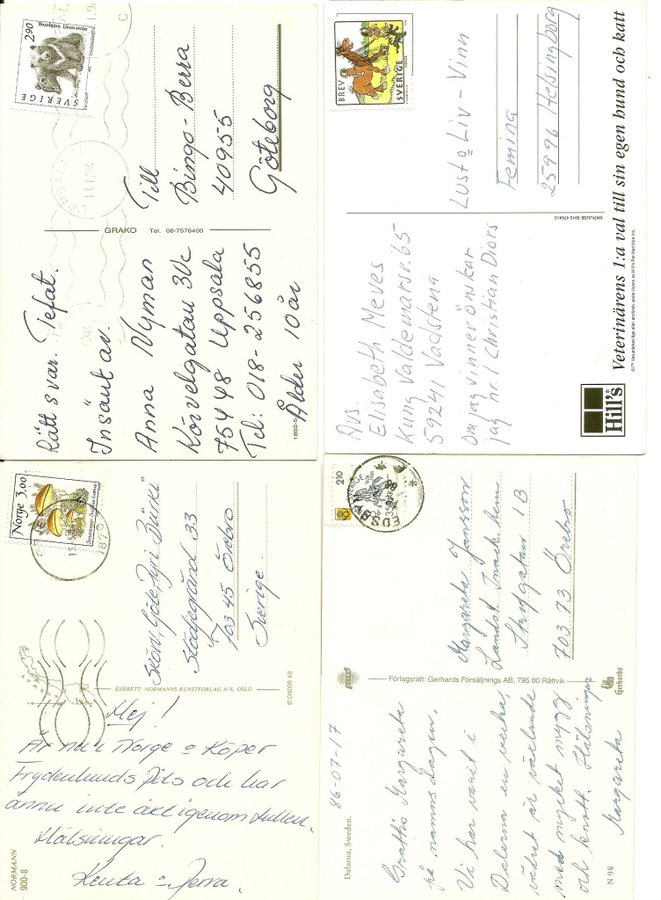 2.90
SVERIGE
Till
Bingo-Berra
40955
Göteborg
GRAKO Tel. 08-7576400
Rätt svar. Tefat.
Insänt av.
Anna Nyman
Korvelgatan 30c
75448 Uppsala
Tel: 018-256855
Ålder 10 år
1802-5
BREV
SVERIGE
Lust o Liv - Vinn
Femina
25996 Helsingborg
Avs.
Elisabeth Meves
Kung Valdemarsv. 65
59241 Vadstena
Om jag vinner önskar
jag nr. 1 Christian Diors
Veterinärens 1:a val till sin egen hund och katt
Hill's
Norge 3,00
703 45 Örebro
Sverige
ENERETT: NORMANNS KUNSTFORLAG A/S, OSLO
© ONDOR AB
Hej!
Är nu i Norge o Köper
Frydenlunds Pils och har
ännu inte åkt igenom tullen.
Hälsningar.
Kenta o Perra.
NORMANN
900-8
210
Margareta Jansson
703 73 Örebro
Förlagsrätt: Gerhards Försäljnings AB, 795 00 Rättvik
Gerhards
86-07-17
Grattis Margareta
på namnsdagen.
Vi har varit i
Dalarna en vecka,
vädret är växlande
med mycket mygg
och knott. Hälsningar
Margareta
Dalarna, Sweden.
N 98